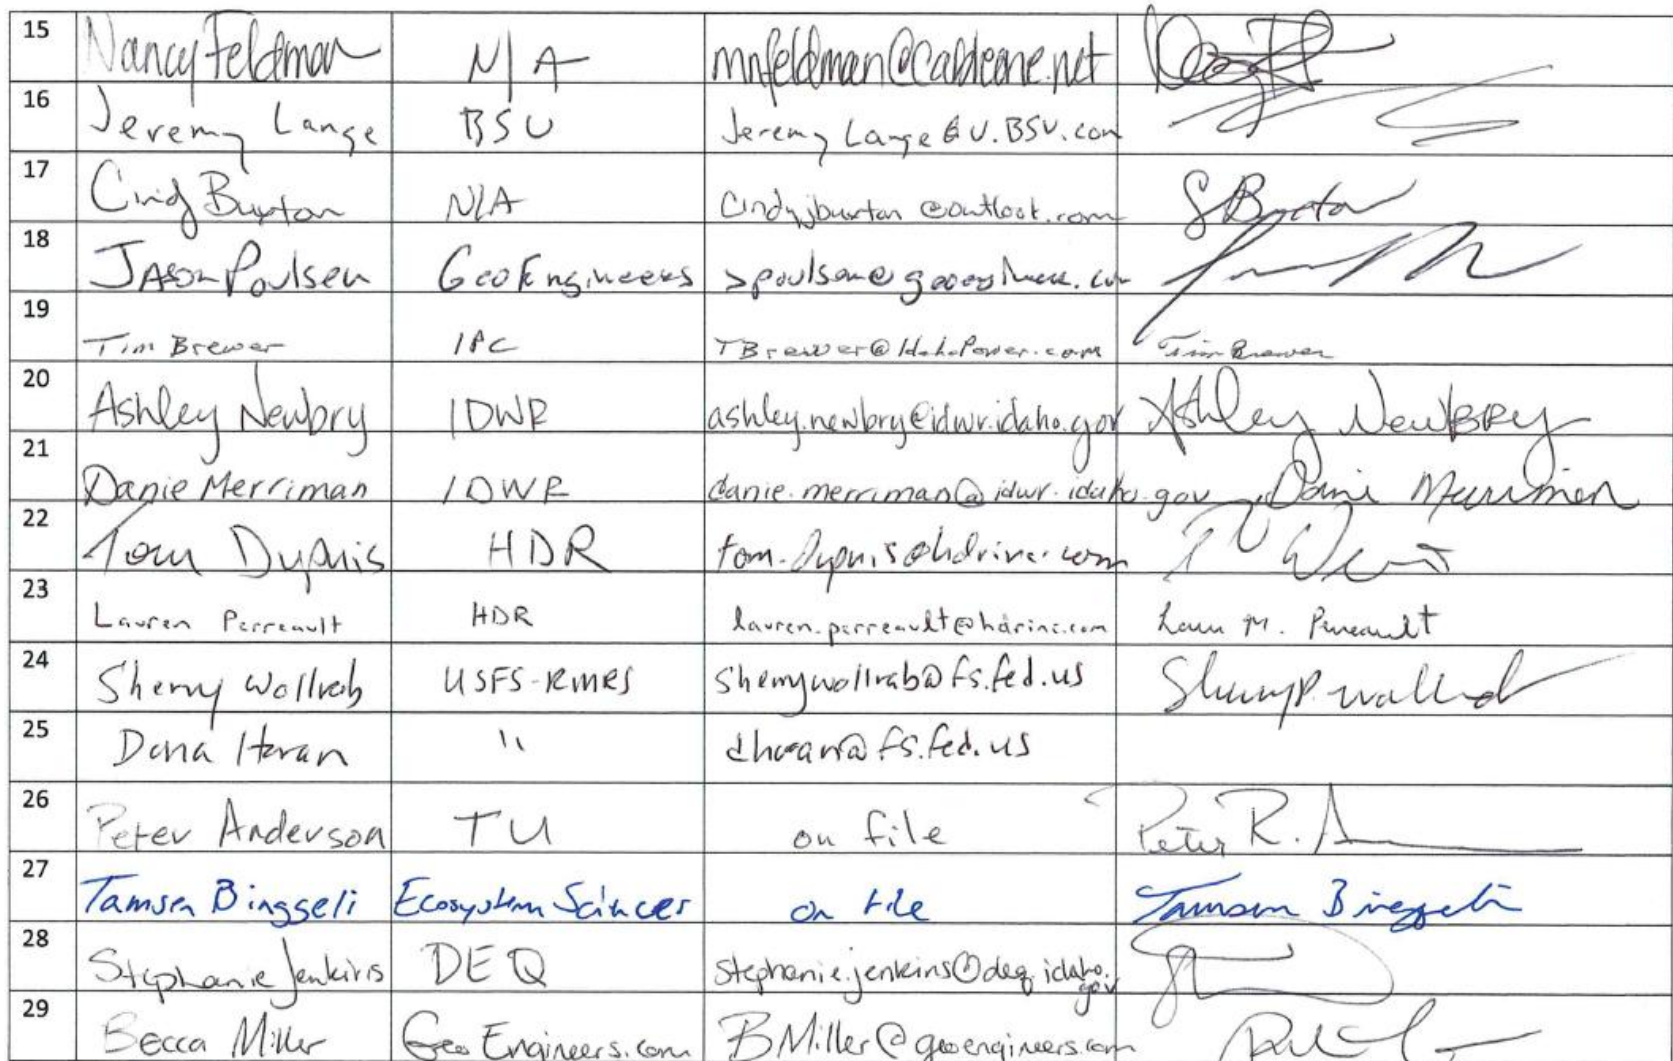 15 Nancy Feldman N/A mnfeldman@cableone.net
16 Jeremy Lange BSU Jeremy Lange @U.BSU.com
17 Cindy Buxton N/A Cindyjbuxton@outlook.com S Buxton
18 JASON Poulsen GeoEngineers
19 Tim Brewer IPC TBrewer@IdahoPower.com Tim Brewer
20 Ashley Newbry IDWR ashley.newbry@idwr.idaho.gov Ashley Newbry
21 Danie Merriman IDWR danie.merriman@idwr.idaho.gov Danie Merriman
22 Tom Dupuis HDR tom.dupuis@hdrinc.com
23 Lauren Perreault HDR lauren.perreault@hdrinc.com Lauren M. Perreault
24 Sherry Wollrab USFS-RMRS sherrywollrab@fs.fed.us Sherry P. Wollrab
25 Dona Horan " dhoran@fs.fed.us
26 Peter Anderson TU on file Peter R. A
27 Tamsen Binggeli Ecosystem Sciences on file Tamsen Binggeli
28 Stephanie Jenkins DEQ stephanie.jenkins@deq.idaho.gov
29 Becca Miller GeoEngineers.com BMiller@geoengineers.com